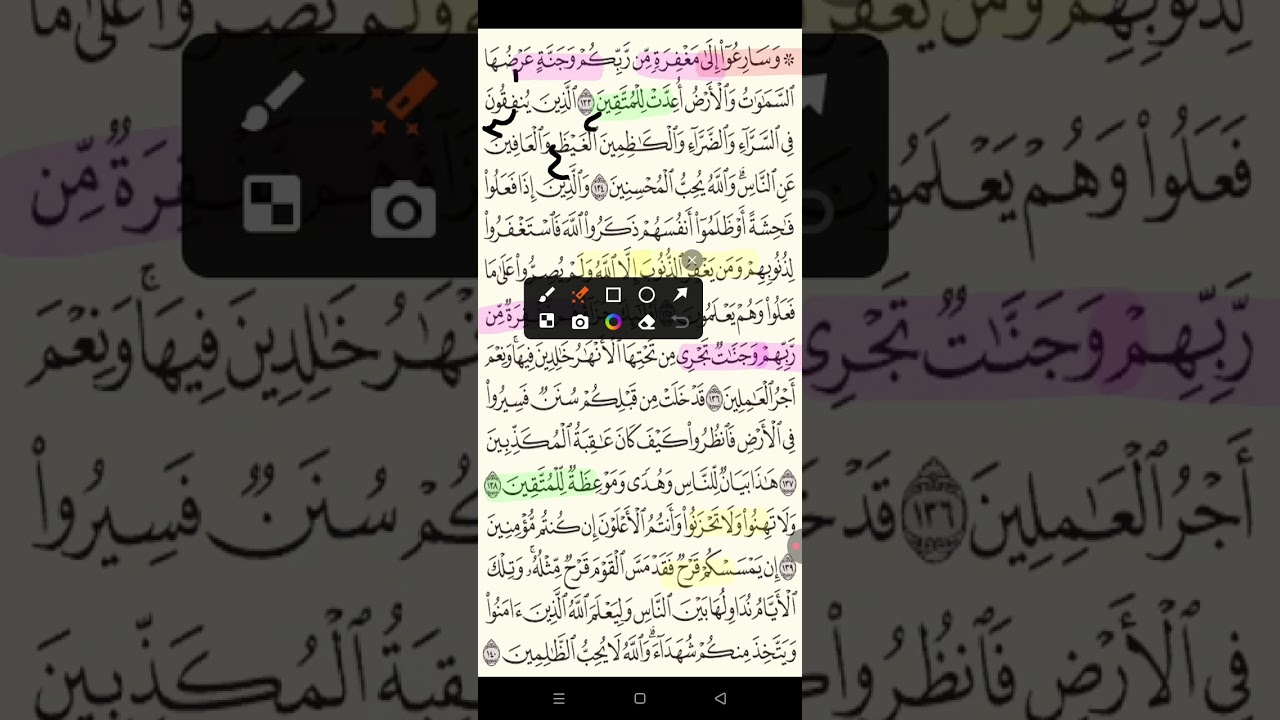 ۞ وَسَارِعُوٓا۟ إِلَىٰ مَغْفِرَةٍ مِّن رَّبِّكُمْ وَجَنَّةٍ عَرْضُهَا
ٱلسَّمَٰوَٰتُ وَٱلْأَرْضُ أُعِدَّتْ لِلْمُتَّقِينَ ١٣٣ ٱلَّذِينَ يُنفِقُونَ
فِى ٱلسَّرَّآءِ وَٱلضَّرَّآءِ وَٱلْكَٰظِمِينَ ٱلْغَيْظَ وَٱلْعَافِينَ
عَنِ ٱلنَّاسِ ۗ وَٱللَّهُ يُحِبُّ ٱلْمُحْسِنِينَ ١٣٤ وَٱلَّذِينَ إِذَا فَعَلُوا۟
فَٰحِشَةً أَوْ ظَلَمُوٓا۟ أَنفُسَهُمْ ذَكَرُوا۟ ٱللَّهَ فَٱسْتَغْفَرُوا۟
لِذُنُوبِهِمْ وَمَن يَغْفِرُ ٱلذُّنُوبَ إِلَّا ٱللَّهُ وَلَمْ يُصِرُّوا۟ عَلَىٰ مَا
فَعَلُوا۟ وَهُمْ يَعْلَمُونَ مِّن
رَّبِّهِمْ وَجَنَّٰتٌ تَجْرِى مِن تَحْتِهَا ٱلْأَنْهَٰرُ خَٰلِدِينَ فِيهَا ۚ وَنِعْمَ
أَجْرُ ٱلْعَٰمِلِينَ ١٣٦ قَدْ خَلَتْ مِن قَبْلِكُمْ سُنَنٌ فَسِيرُوا۟
فِى ٱلْأَرْضِ فَٱنظُرُوا۟ كَيْفَ كَانَ عَٰقِبَةُ ٱلْمُكَذِّبِينَ
١٣٧ هَٰذَا بَيَانٌ لِّلنَّاسِ وَهُدًى وَمَوْعِظَةٌ لِّلْمُتَّقِينَ ١٣٨
وَلَا تَهِنُوا۟ وَلَا تَحْزَنُوا۟ وَأَنتُمُ ٱلْأَعْلَوْنَ إِن كُنتُم مُّؤْمِنِينَ
١٣٩ إِن يَمْسَسْكُمْ قَرْحٌ فَقَدْ مَسَّ ٱلْقَوْمَ قَرْحٌ مِّثْلُهُۥ ۚ وَتِلْكَ
ٱلْأَيَّامُ نُدَاوِلُهَا بَيْنَ ٱلنَّاسِ وَلِيَعْلَمَ ٱللَّهُ ٱلَّذِينَ ءَامَنُوا۟
وَيَتَّخِذَ مِنكُمْ شُهَدَآءَ ۗ وَٱللَّهُ لَا يُحِبُّ ٱلظَّٰلِمِينَ ١٤٠